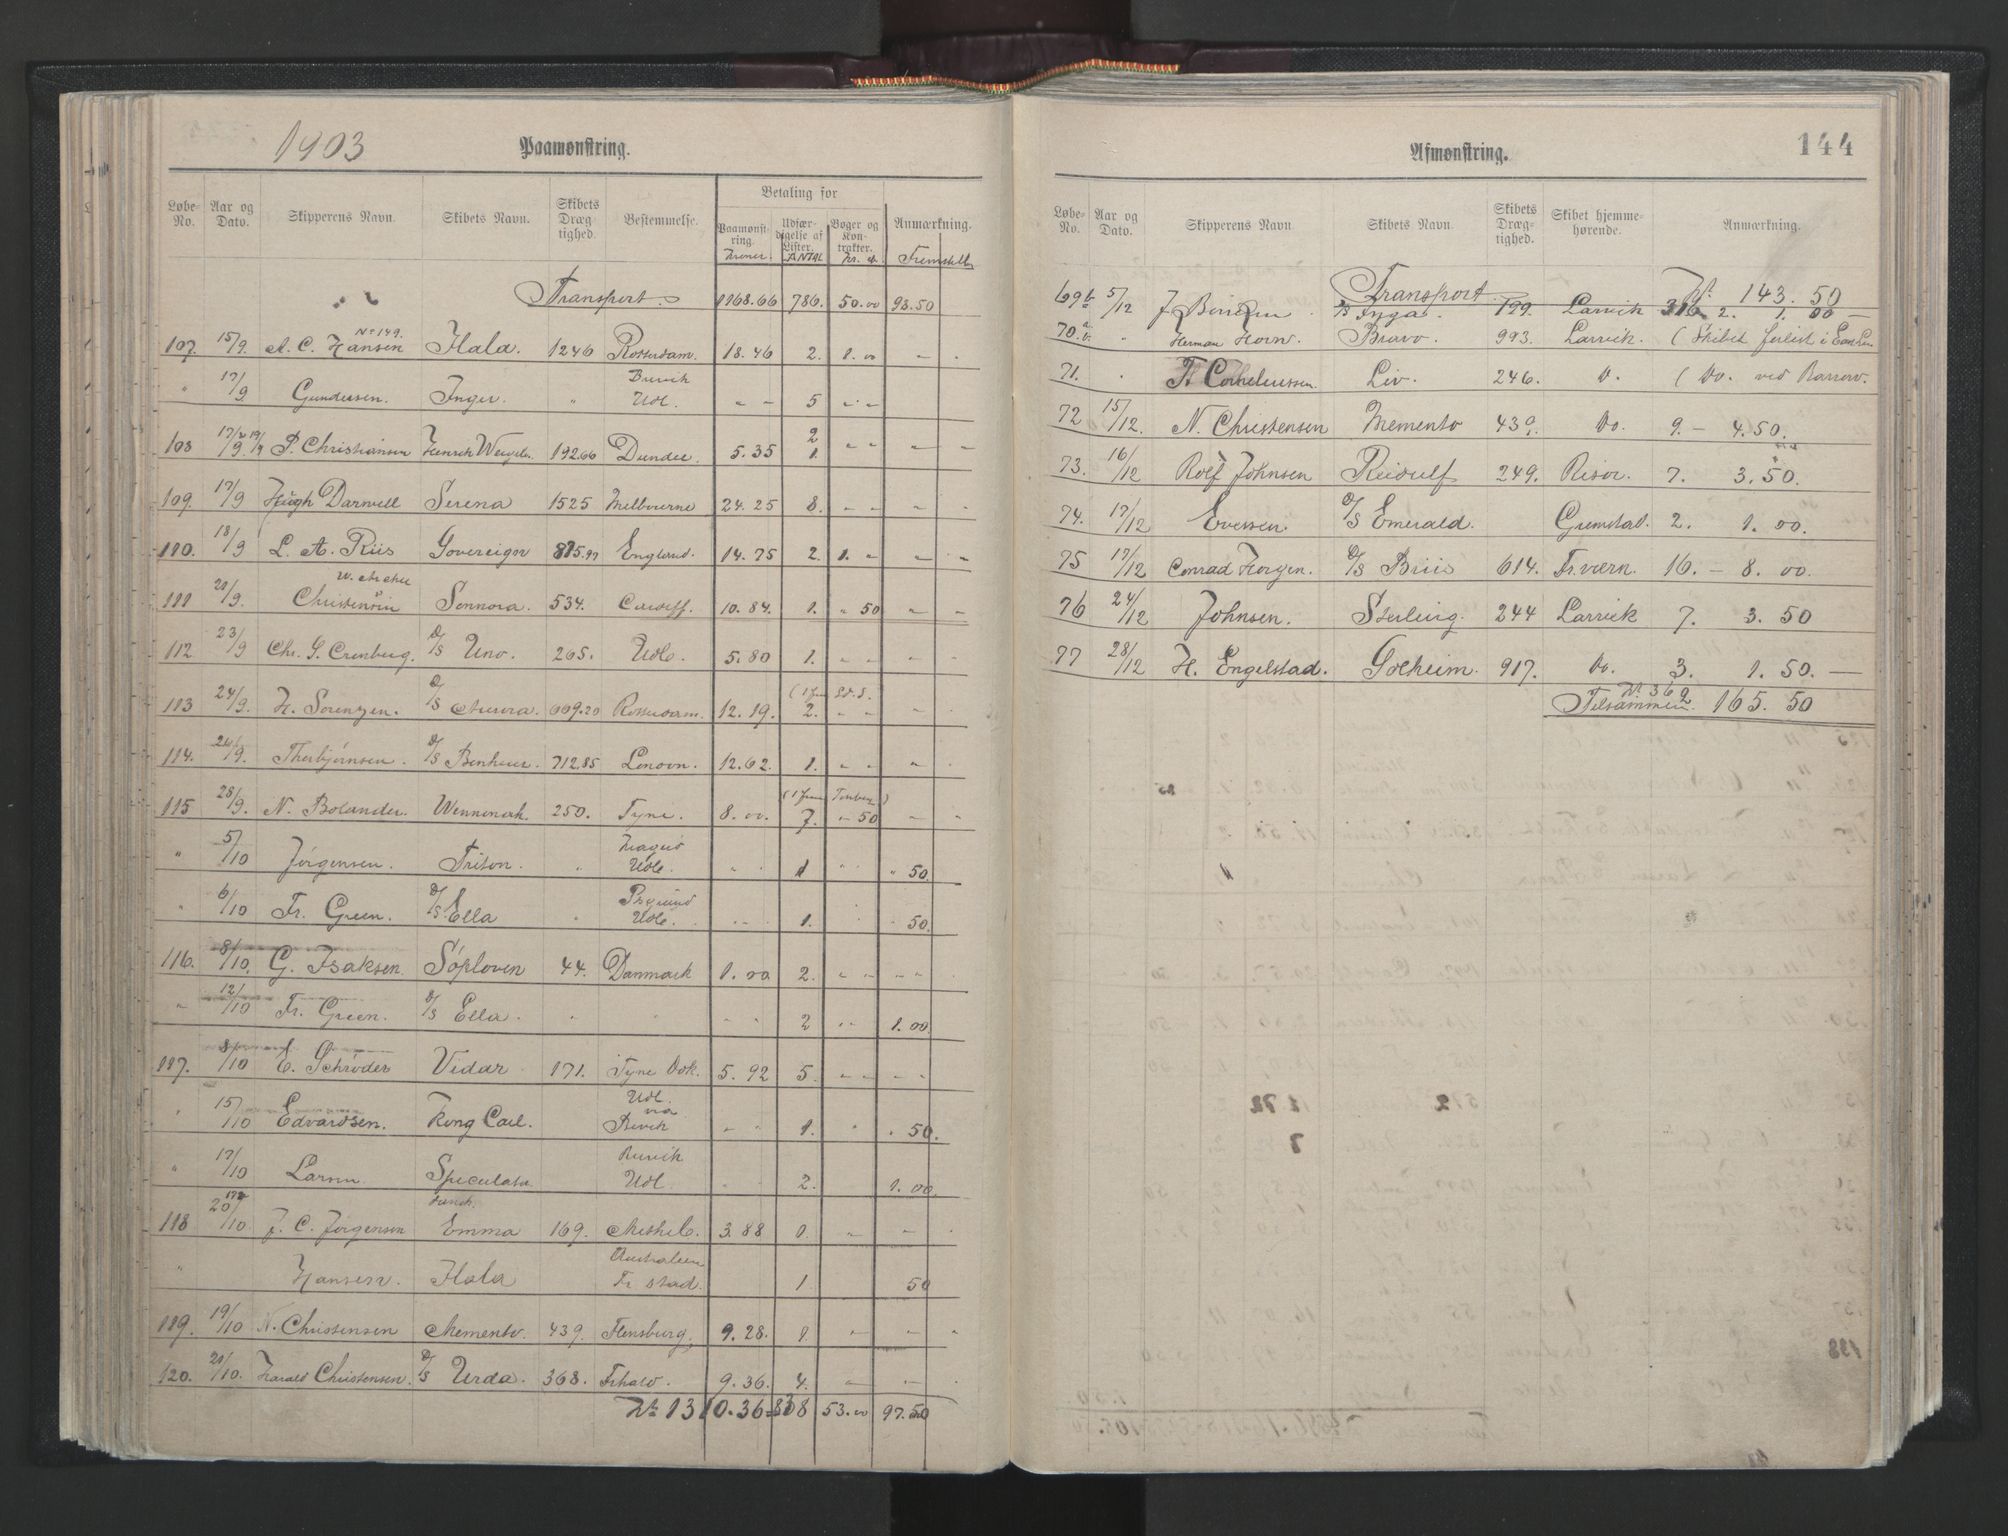 1903 Paamønstring.
Løbe-No. Aar og Dato. Skipperens Navn. Skibets Navn. Skibets Dræg-tighed. Bestemmelse. Betaling for Paamønst-ring. Udfær-digelse af Lister. Bøger og Kon-trakter. Anmærkning.
Kroner. ANTAL Kr. Ø. Fremstill
Transport. 1168.66 786. 50.00 93.50
No 149.
107. 15/9. A. C. Hansen Hala. 1246 Rotterdam. 18.46 2. 1.00 " "
Burvik
" 17/9 Gundersen. Inger. " Udl. " " 5 " "
108 17/9 19/9 P. Christiansen Henrik Wergeln. 192.66 Dundee. 5.35 2 1. " " " "
109. 17/9 Hugh Darwell Serena 1525 Melbourne 24.25 8. " " " "
110. 18/9 L. A. Riis Sovereign 815.97 England. 14.75 2. 1. " " "
111 21/9. Christensen Sonnora. 534. Cardiff. 10.84. 1. " 50 " "
112 23/9 Chr. G. Cranberg. D/S Uno. 265. Udl. 5.80 1. " " " "
113 24/9. H. Sørensen. D/S Aurora. 669.20 Rotterdam. 12.19. 2. " "
114. 26/9. Thorbjørnsen. D/S Benheur. 712.85 London. 12.62. 1. " " " "
115 28/9. N. Bolander. Wennonah. 250. Tyne. 8.00. 7. " 50 " "
" 5/10 Jørgensen. Triton. " Udl. " " 1 " " " 50.
" 6/10 Fr. Green. D/S Ella " Udl. " " 1. " 50.
116. 8/10. G. Isaksen. Søploven 44. Danmark 1.00 2. " " " "
" 12/10 Fr. Green. D/S Ella. " " " " 2 " " 1.00.
117. 8/10 E. Schrøder Vidar. 171. Tyne Dok. 5.92 5. " " " "
Udl. via
" 15/10 Edvardsen. Kong Carl. " " 1. " " 50.
" 17/10 Larsen Speculata Udl. 2. 1.00
118 20/10. J. C. Jørgensen Emma 169. Methil. 3.88 1. " "
Australien
" Hansen. Hala Fr stad. 1. 50
119. 19/10 N. Christensen Memento. 439. Flensburg, 9.28. 1. " " "
120. 21/10. Harald Christensen. D/S Urda. 368. Frhald. 9.36. 4. " "
Kr. 1310.36 838 53.00 97.50
144
Afmønstring.
Løbe-No. Aar og Dato. Skipperens Navn Skibets Navn Skibets Dræg-tighed. Skibet hjemme-hørende. Anmærkning.
Transport. 316 143.50
69 b 5/12 D/S Inga. 199. Larvik 2. 1.00 —
70. " Herman Horn. Bravo. 993. Larvik. ( Skibet forlist i
71. " Fr. Corneliussen. Liv. 246. Do. ( Do. ved
72 15/12. N. Christensen Memento 439. Do. 9. — 4.50.
73. 16/12 Rolf Johnsen Reidulf 249. Risør. 7. 3.50.
74. 17/12 Evensen. D/S Emerald. Grimstad. 2. 1.00.
75 17/12 Conrad Horgen. D/S Briis 614. Fr.værn. 16. — 8.00.
76 24/12 Johnsen. Sterling. 244 Larvik 7. 3.50
77 28/12 H. Engelstad. Solheim. 917. Do. 3. 1.50. —
Tilsammen. 369 165.50